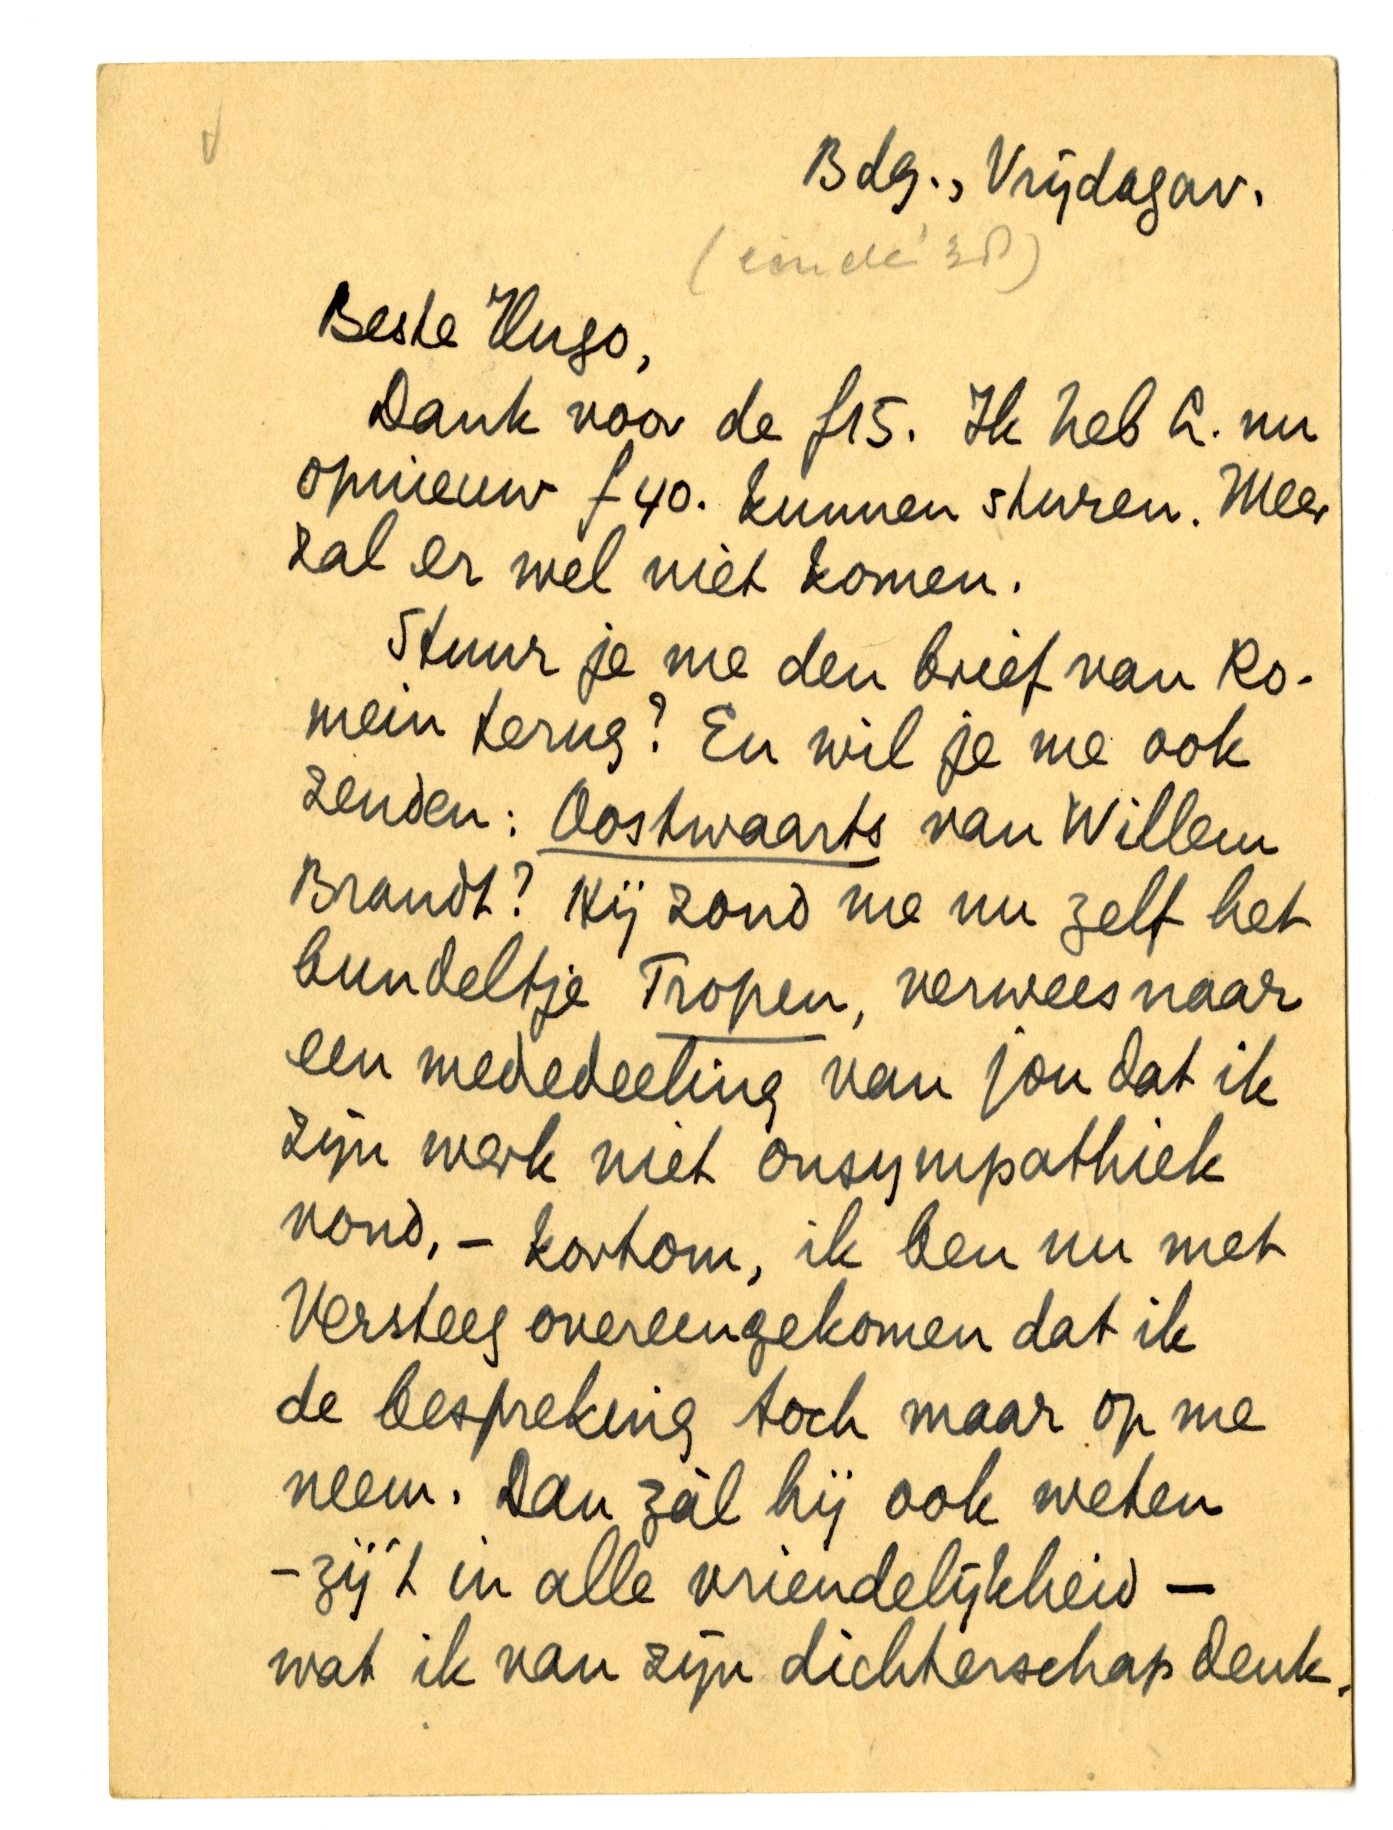 Bdg., Vrijdagav.
(einde '38)
Beste Hugo,
Dank voor de f15. Ik heb G. nu
opnieuw f 40. kunnen sturen. Meer
zal er wel niet komen.
Stuur je me den brief van Ro-
mein terug? En wil je me ook
zenden: Oostwaarts van Willem
Brandt? Hij zond me nu zelf het
bundeltje Tropen, verwees naar
een mededeeling van jou dat ik
zijn werk niet onsympathiek
vond, – kortom, ik ben nu met
Versteeg overeengekomen dat ik
de bespreking toch maar op me
neem. Dan zàl hij ook weten
– zij 't in alle vriendelijkheid –
wat ik van zijn dichterschap denk.